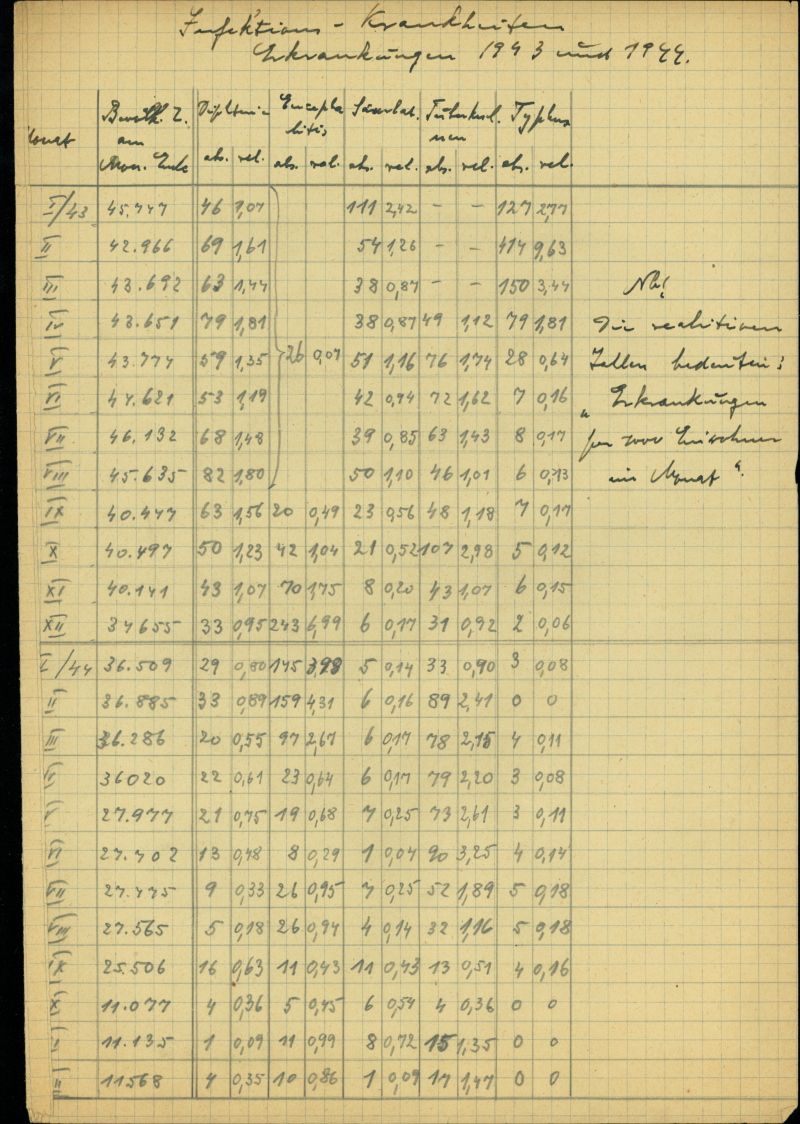 Infektions-Krankheiten
Erkrankungen 1943 und 1944.
Monat Bevölk. Z. am Mon. Ende Diphterie abs. rel. Encephalitis abs. rel. Scarlat. abs. rel. Tuberkul. abs. rel. Typhus abs. rel.
I/43 45.447 46 1,01 111 2,42 - - 127 2,77
II 42.966 69 1,61 54 1,26 - - 414 9,63
III 43.692 63 1,44 38 0,87 - - 150 3,44
IV 43.651 79 1,81 38 0,87 49 1,12 79 1,81
V 43.777 59 1,35 26 0,07 51 1,16 76 1,74 28 0,64
VI 44.621 53 1,19 42 0,94 72 1,62 7 0,16
VII 46.132 68 1,48 39 0,85 63 1,43 8 0,17
VIII 45.635 82 1,80 50 1,10 46 1,01 6 0,13
IX 40.447 63 1,56 20 0,49 23 0,56 48 1,18 7 0,17
X 40.497 50 1,23 42 1,04 21 0,52 107 2,98 5 0,12
XI 40.141 43 1,07 70 1,75 8 0,20 43 1,07 6 0,15
XII 34655 33 0,95 243 6,99 6 0,17 31 0,92 2 0,06
I/44 36.509 29 0,80 145 3,98 5 0,14 33 0,90 3 0,08
II 36.885 33 0,89 159 4,31 6 0,16 89 2,41 0 0
III 36.286 20 0,55 97 2,67 6 0,17 78 2,15 4 0,11
IV 36020 22 0,61 23 0,64 6 0,17 79 2,20 3 0,08
V 27.977 21 0,75 19 0,68 7 0,25 73 2,61 3 0,11
VI 27.702 13 0,48 8 0,29 1 0,04 90 3,25 4 0,14
VII 27.475 9 0,33 26 0,95 7 0,25 52 1,89 5 0,18
VIII 27.565 5 0,18 26 0,94 4 0,14 32 1,16 5 0,18
IX 25.506 16 0,63 11 0,43 11 0,43 13 0,51 4 0,16
X 11.077 4 0,36 5 0,45 6 0,54 4 0,36 0 0
11.135 1 0,09 11 0,99 8 0,72 15 1,35 0 0
11568 4 0,35 10 0,86 1 0,09 17 1,47 0 0
Nb!
Die realitiven
Zallen bedeuten:
„Erkrankungen
per 1000 Einwohner
im Monat“.